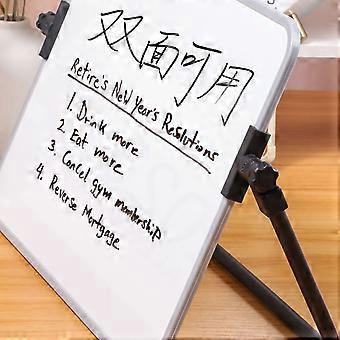 双面可用
Retire's New Year's Reslutions
1. Drink more
2. Eat more
3. Cancel gym membership
4. Reverse Mortgage